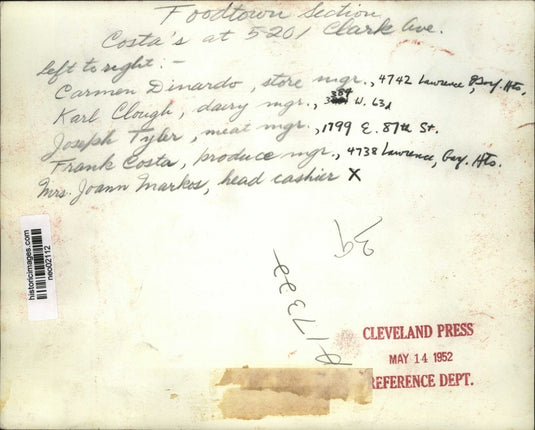 Foodtown Section
Costa's at 5201 Clark Ave.
Left to right: -
Carmen Dinardo, store mgr., 4742 Lawrence, Gar. Hts.
Karl Clough, dairy mgr., 384 W. 63rd
Joseph Tyler, meat mgr., 1799 E. 87th St.
Frank Costa, produce mgr., 4738 Lawrence, Gar. Hts.
Mrs. Joann Markos, head cashier X
39
historicimages.com
neo02112
CLEVELAND PRESS
MAY 14 1952
REFERENCE DEPT.